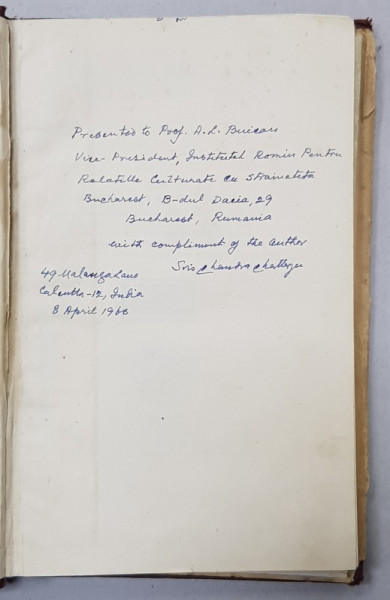 Presented to Prof. A.L. Buican
Vice-President, Institutul Romin Pentru
Relatille Culturate cu Strainatata
Bucharest, B-dul Dacia, 29
Bucharest, Rumania
with compliment of the author
Sris Chandra Chatterjee
49 Malanga Lane
Calcutta-12, India
8 April 1960